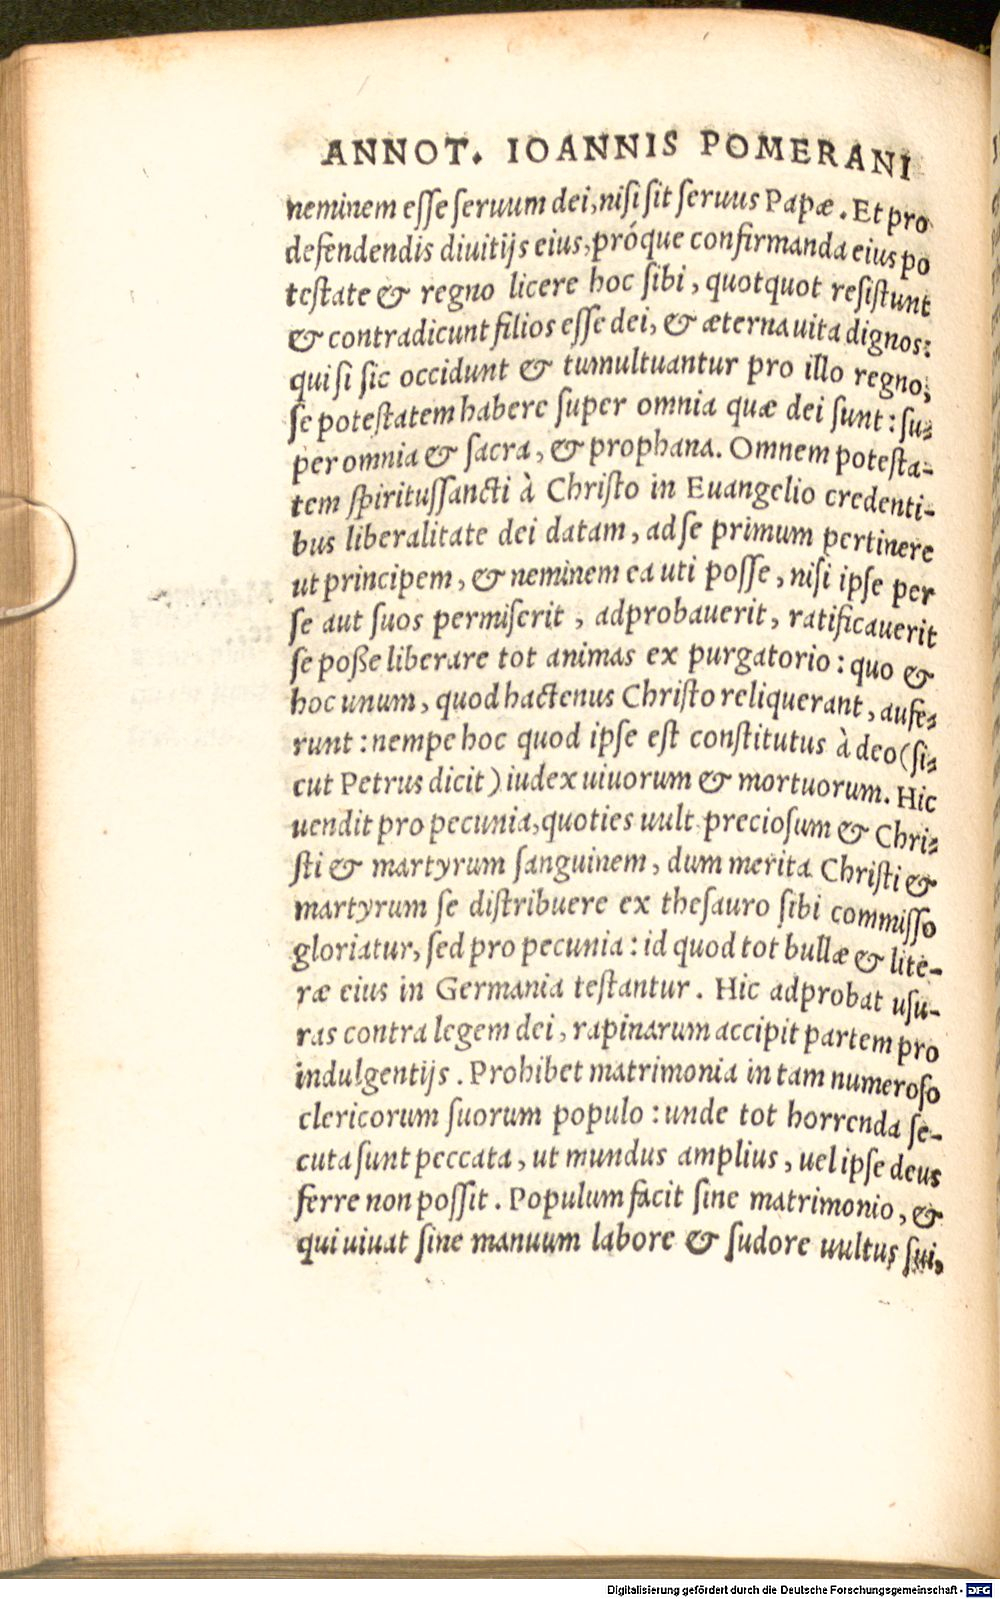 ANNOT. IOANNIS POMERANI
neminem eſſe ſeruum dei, niſi ſit ſeruus Papæ. Et pro
defendendis diuitijs eius, próque confirmanda eius po
teſtate & regno licere hoc ſibi, quotquot reſiſtunt
& contradicunt filios eſſe dei, & æterna uita dignos:
qui ſi ſic occidunt & tumultuantur pro illo regno,
ſe poteſtatem habere ſuper omnia quæ dei ſunt: ſu-
per omnia & ſacra, & prophana. Omnem poteſta-
tem ſpirituſſancti à Chriſto in Euangelio credenti-
bus liberalitate dei datam, ad ſe primum pertinere
ut principem, & neminem ea uti poſſe, niſi ipſe per
ſe aut ſuos permiſerit, adprobauerit, ratificauerit
ſe poße liberare tot animas ex purgatorio: quo &
hoc unum, quod hactenus Chriſto reliquerant, aufe-
runt: nempe hoc quod ipſe eſt conſtitutus à deo (ſi-
cut Petrus dicit) iudex uiuorum & mortuorum. Hic
uendit pro pecunia, quoties uult precioſum & Chri-
ſti & martyrum ſanguinem, dum merita Chriſti &
martyrum ſe diſtribuere ex theſauro ſibi commiſſo
gloriatur, ſed pro pecunia: id quod tot bullæ & lite-
ræ eius in Germania teſtantur. Hic adprobat uſu-
ras contra legem dei, rapinarum accipit partem pro
indulgentijs. Prohibet matrimonia in tam numeroſo
clericorum ſuorum populo: unde tot horrenda ſe-
cuta ſunt peccata, ut mundus amplius, uel ipſe deus
ferre non poſſit. Populum facit ſine matrimonio, &
qui uiuat ſine manuum labore & ſudore uultus ſui,
Digitalisierung gefördert durch die Deutsche Forschungsgemeinschaft - DFG